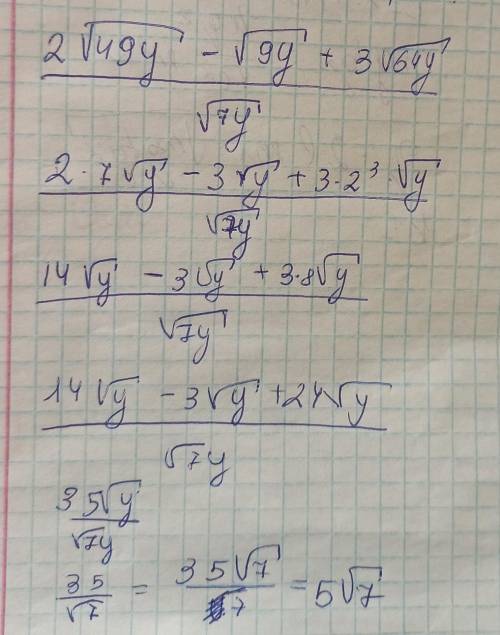 2√49y − √9y + 3√64y
√7y
2 · 7√y − 3√y + 3 · 2³ · √y
√7y
14√y − 3√y + 3·8√y
√7y
14√y − 3√y + 24√y
√7y
35√y
√7y
35/√7 = 35√7/7 = 5√7